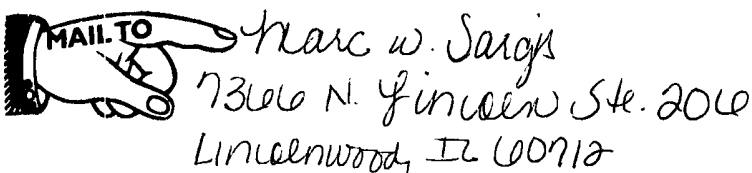 MAIL TO
Marc W. Sargis
7366 N. Lincoln Ste. 206
Lincolnwood, IL 60712